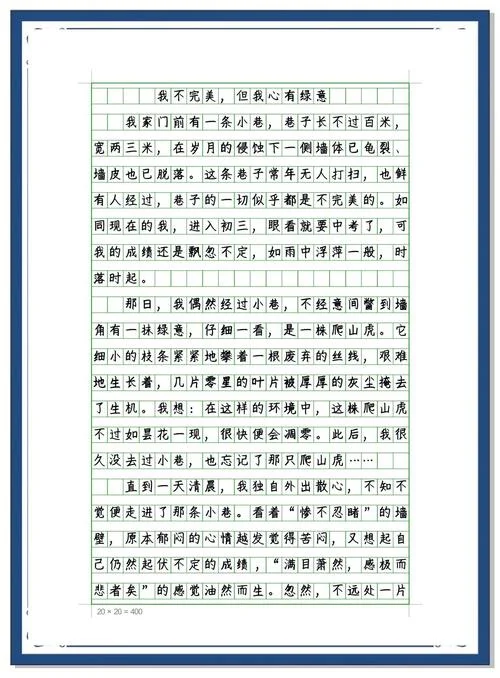 我不完美，但我心有绿意
我家门前有一条小巷，巷子长不过百米，
宽两三米，在岁月的侵蚀下一侧墙体已龟裂、
墙皮也已脱落。这条巷子常年无人打扫，也鲜
有人经过，巷子的一切似乎都是不完美的。如
同现在的我，进入初三，眼看就要中考了，可
我的成绩还是飘忽不定，如雨中浮萍一般，时
落时起。
那日，我偶然经过小巷，不经意间瞥到墙
角有一抹绿意，仔细一看，是一株爬山虎。它
细小的枝条紧紧地攀着一根废弃的丝线，艰难
地生长着，几片零星的叶片被厚厚的灰尘掩去
了生机。我想：在这样的环境中，这株爬山虎
不过如昙花一现，很快便会凋零。此后，我很
久没去过小巷，也忘记了那只爬山虎……
直到一天清晨，我独自外出散心，不知不
觉便走进了那条小巷。看着“惨不忍睹”的墙
壁，原本郁闷的心情越发觉得苦闷，又想起自
己仍然起伏不定的成绩，“满目萧然，感极而
悲者矣”的感觉油然而生。忽然，不远处一片
20 × 20 = 400